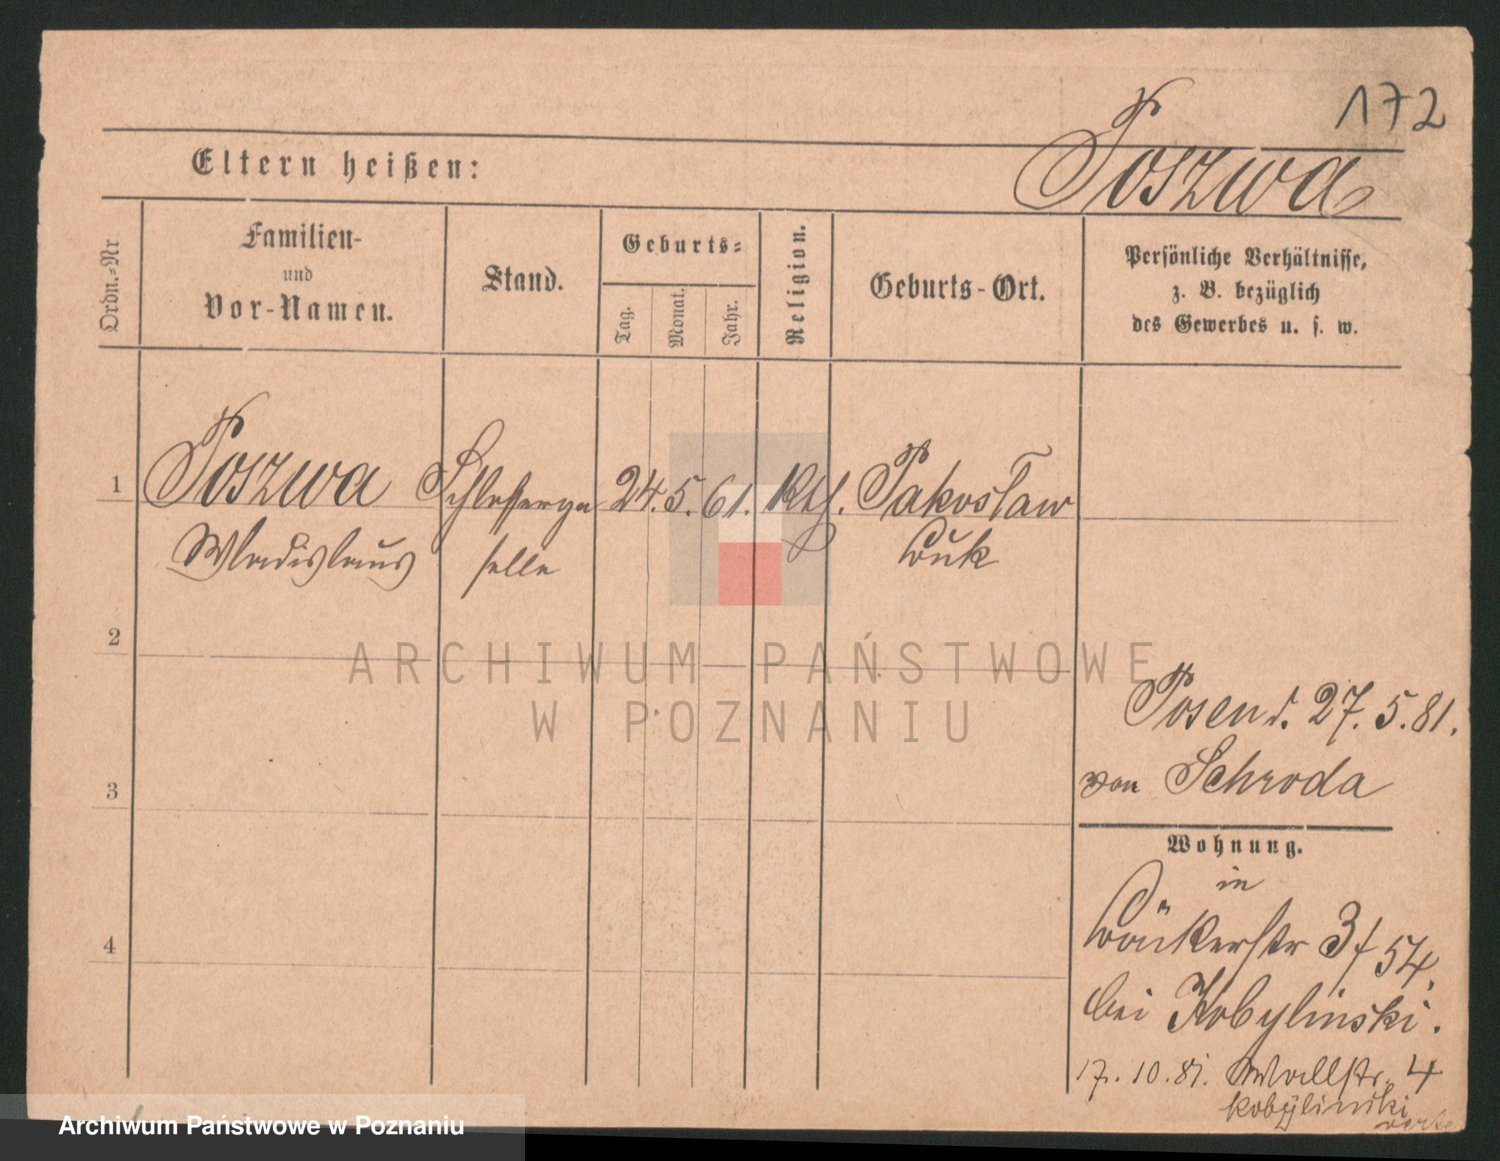 172
Eltern heißen:
Poszwa
Ordn.=Nr
Familien-
und
Vor-Namen.
Stand.
Geburts=
Tag.
Monat.
Jahr.
Religion.
Geburts-Ort.
Persönliche Verhältnisse,
z. B. bezüglich
des Gewerbes u. s. w.
1
Poszwa Schlosserge 24. 5. 61. kth. Pakosław
Wladislaus selle Buk
2
ARCHIWUM PAŃSTWOWE
W POZNANIU
Posen d. 27. 5. 81.
von Schroda
3
Wohnung.
in
Bäckerstr 3/54.
bei Kobylinski.
4
17. 10. 81. Wallstr. 4
Kobylinski
Archiwum Państwowe w Poznaniu